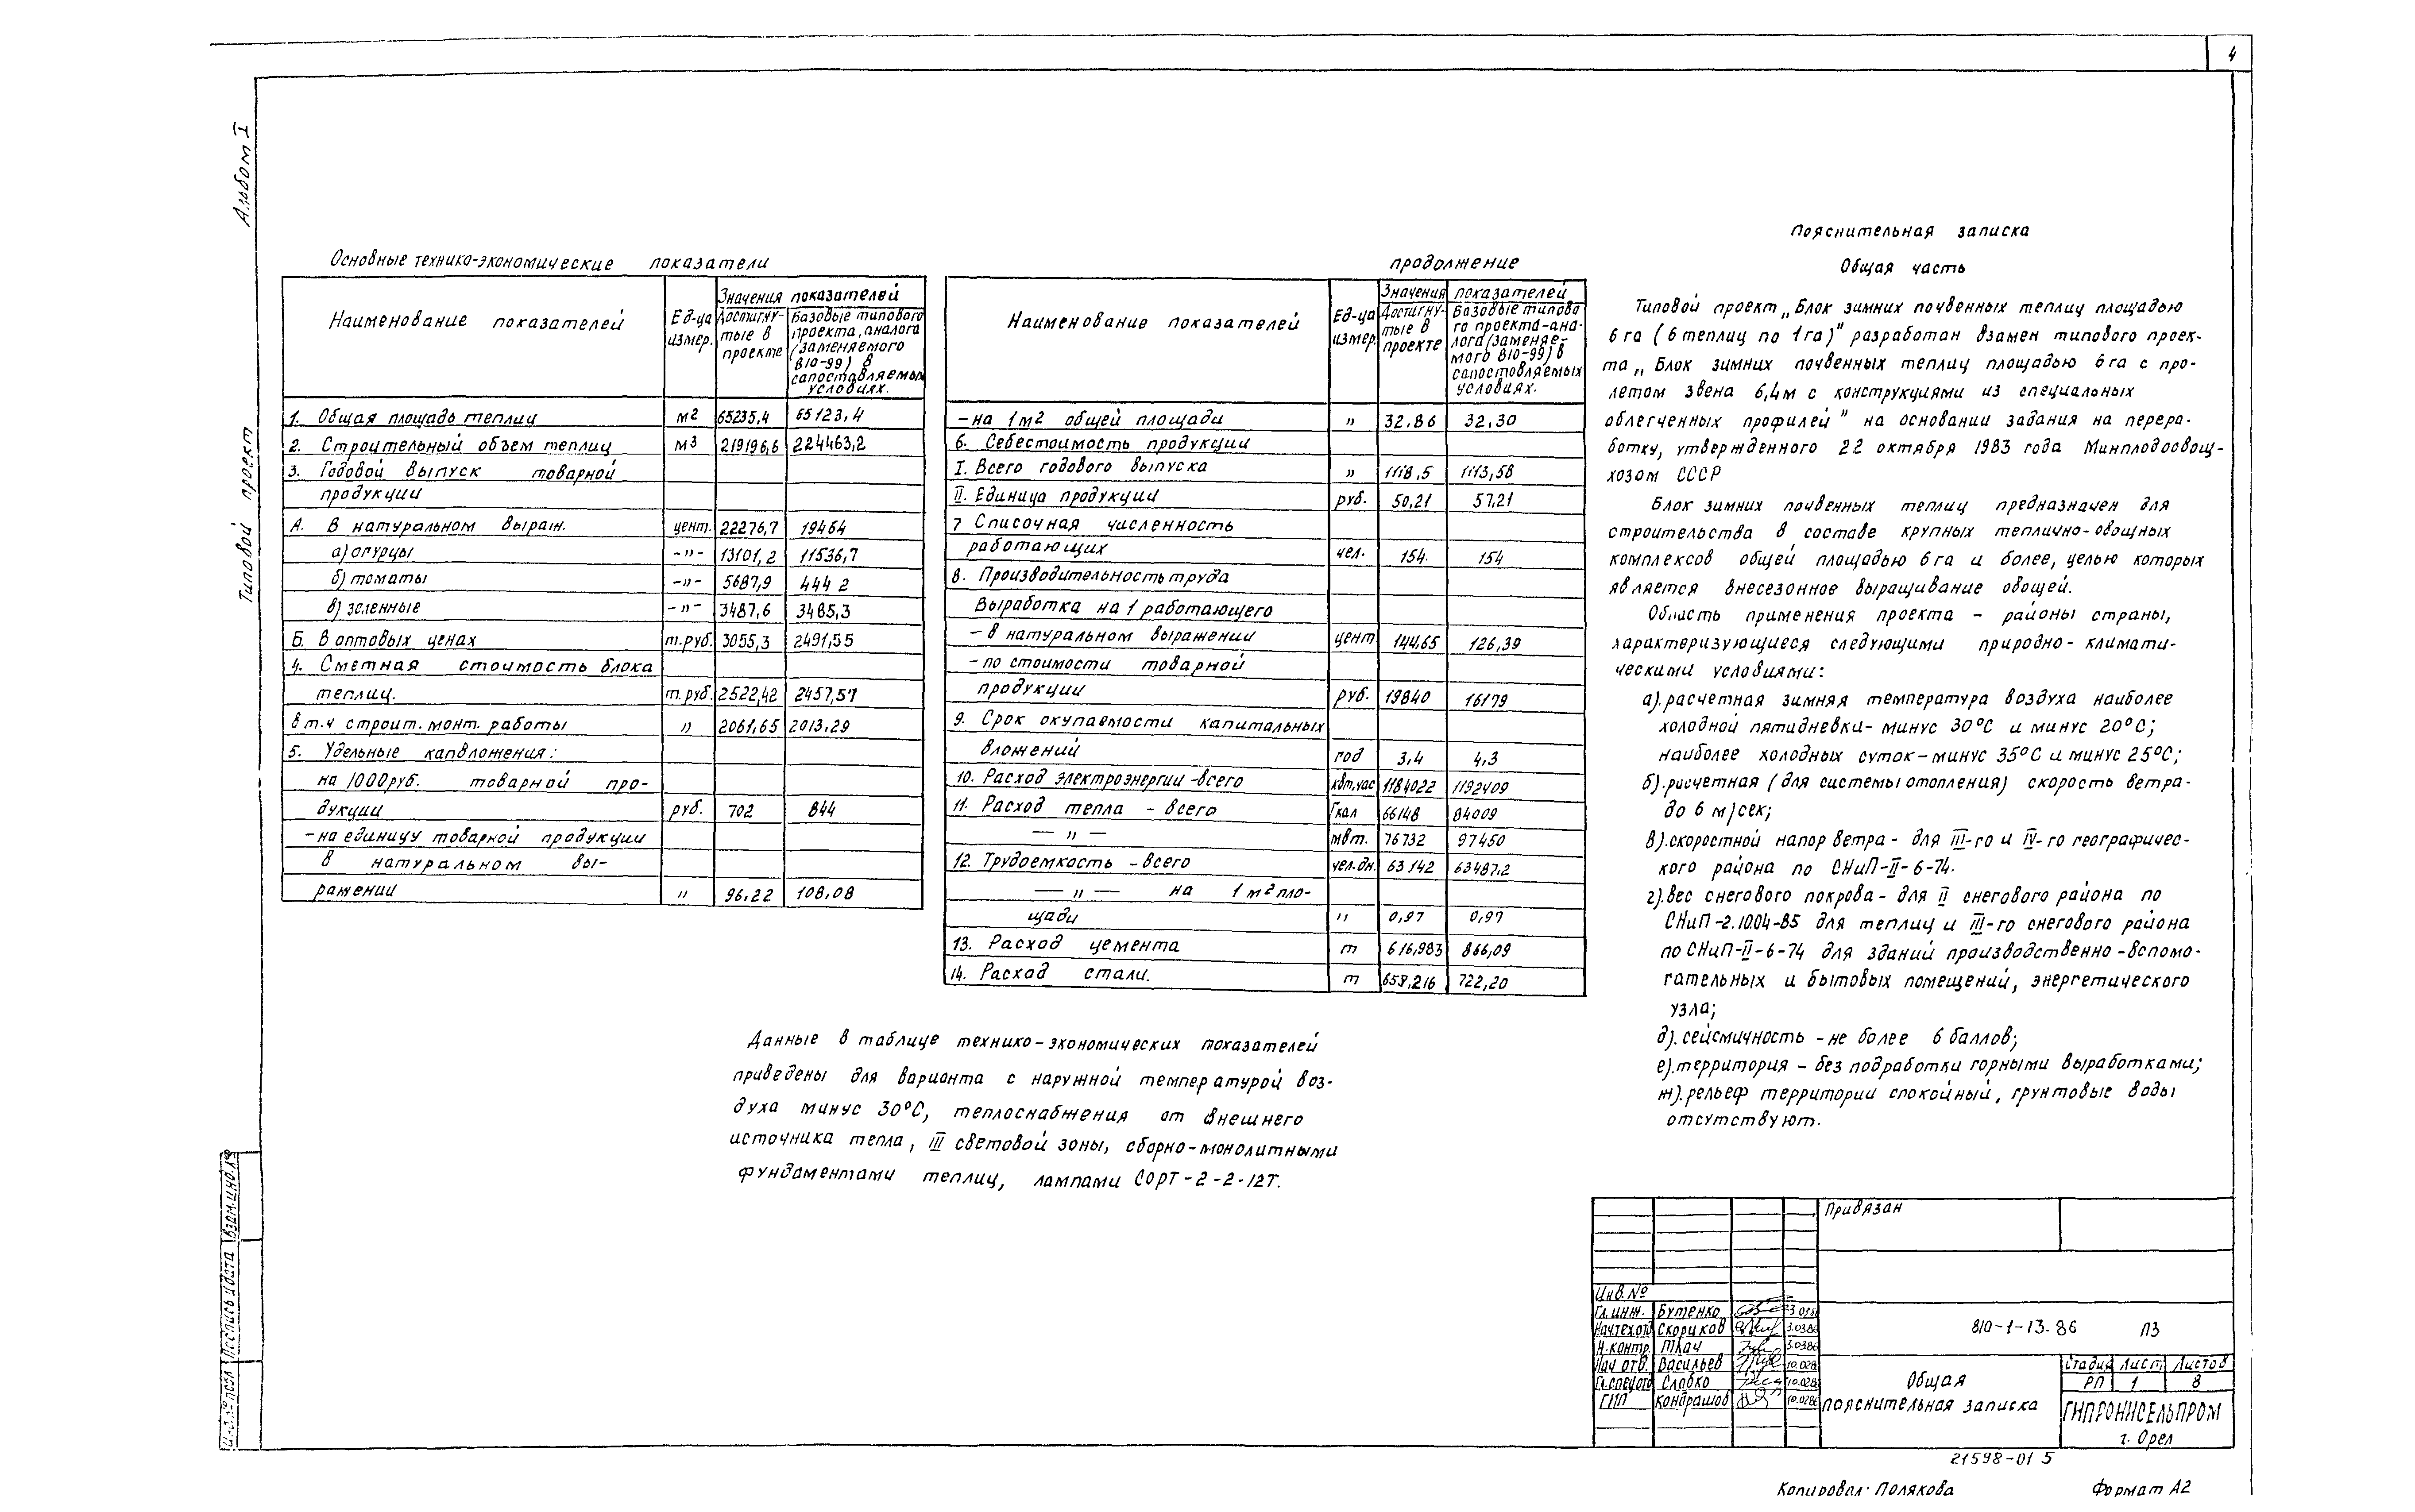 4
Альбом I
Типовой проект
Основные технико-экономические показатели
Наименование показателей
Ед-ца измер.
Значения показателей
Достигну-тые в проекте
Базовые типового проекта, аналога (заменяемого 810-99) в сопоставляемых условиях.
1. Общая площадь теплиц м2 65235,4 65123,4
2. Строительный объем теплиц м3 219196,6 224463,2
3. Годовой выпуск товарной
продукции
А. В натуральном выраж. цент. 22276,7 19464
а) огурцы -"- 13101,2 11536,7
б) томаты -"- 5687,9 4442
в) зеленные -"- 3487,6 3485,3
Б. В оптовых ценах т.руб. 3055,3 2491,55
4. Сметная стоимость блока
теплиц. т.руб. 2522,42 2457,57
в т.ч строит. монт. работы " 2061,65 2013,29
5. Удельные капвложения:
на 1000 руб. товарной про-
дукции руб. 702 844
-на единицу товарной продукции
в натуральном вы-
ражении " 96.22 108,08
продолжение
Наименование показателей
Ед-ца измер.
Значения показателей
Достигну-тые в проекте
Базовые типово го проекта-ана-лога (заменяе-мого 810-99) в сопоставляемых условиях.
-на 1м2 общей площади " 32.86 32.30
6. Себестоимость продукции
I. Всего годового выпуска " 1118,5 1113,58
II. Единица продукции руб. 50,21 57,21
7 Списочная численность
работающих чел. 154. 154
8. Производительность труда
Выработка на 1 работающего
-в натуральном выражении цент 144,65 126,39
-по стоимости товарной
продукции руб. 19840 16179
9. Срок окупаемости капитальных
вложений год 3,4 4,3
10. Расход электроэнергии -всего квт,час 1184022 1192409
11. Расход тепла - всего Гкал 66148 84009
— " — мвт. 76732 97450
12. Трудоемкость -всего чел.дн. 63142 63487,2
— " — на 1 м2 пло-
щади " 0,97 0,97
13. Расход цемента т 616,983 866,09
14. Расход стали. т 658,216 722,20
Данные в таблице технико-экономических показателей
приведены для варианта с наружной температурой воз-
духа минус 30°С, теплоснабжения от внешнего
источника тепла, III световой зоны, сборно-монолитными
фундаментами теплиц, лампами СОРТ-2-2-12Т.
Пояснительная записка
Общая часть
Типовой проект „Блок зимних почвенных теплиц площадью
6 га (6 теплиц по 1га)" разработан взамен типового проек-
та „Блок зимних почвенных теплиц площадью 6 га с про-
летом звена 6,4м с конструкциями из специальных
облегченных профилей" на основании задания на перера-
ботку, утвержденного 22 октября 1983 года Минплодоовощ-
хозом СССР
Блок зимних почвенных теплиц предназначен для
строительства в составе крупных теплично-овощных
комплексов общей площадью 6 га и более, целью которых
является внесезонное выращивание овощей.
Область применения проекта - районы страны,
характеризующиеся следующими природно-климати-
ческими условиями:
а). расчетная зимняя температура воздуха наиболее
холодной пятидневки- минус 30°С и минус 20°С;
наиболее холодных суток-минус 35°С и минус 25°С;
б). расчетная (для системы отопления) скорость ветра-
до 6 м/сек;
в). скоростной напор ветра - для III-го и IV-го географичес-
кого района по СНиП-II-6-74.
г). вес снегового покрова- для II снегового района по
СНиП-2.10.04-85 для теплиц и III-го снегового района
по СНиП-II-6-74 для зданий производственно-вспомо-
гательных и бытовых помещений, энергетического
узла;
д). сейсмичность - не более 6 баллов;
е). территория - без подработки горными выработками;
ж). рельеф территории спокойный, грунтовые воды
отсутствуют.
Привязан
Инв. №
Гл.инж. Бутенко
Нач.тех.отд Скориков 3.0386
Н.контр. Ткач 3.0386
Нач отд. Васильев 10.0286
Гл.спец.отд Слабко 10.0286
ГИП Кондрашов 10.0286
810-1-13.86 ПЗ
Общая
пояснительная записка
Стадия Лист Листов
РП 1 8
ГИПРОНИСЕЛЬПРОМ
г. Орел
Взам.инв.№
Подпись и дата
Инв.№ подл
21598-01 5
Копировал: Полякова Формат А2